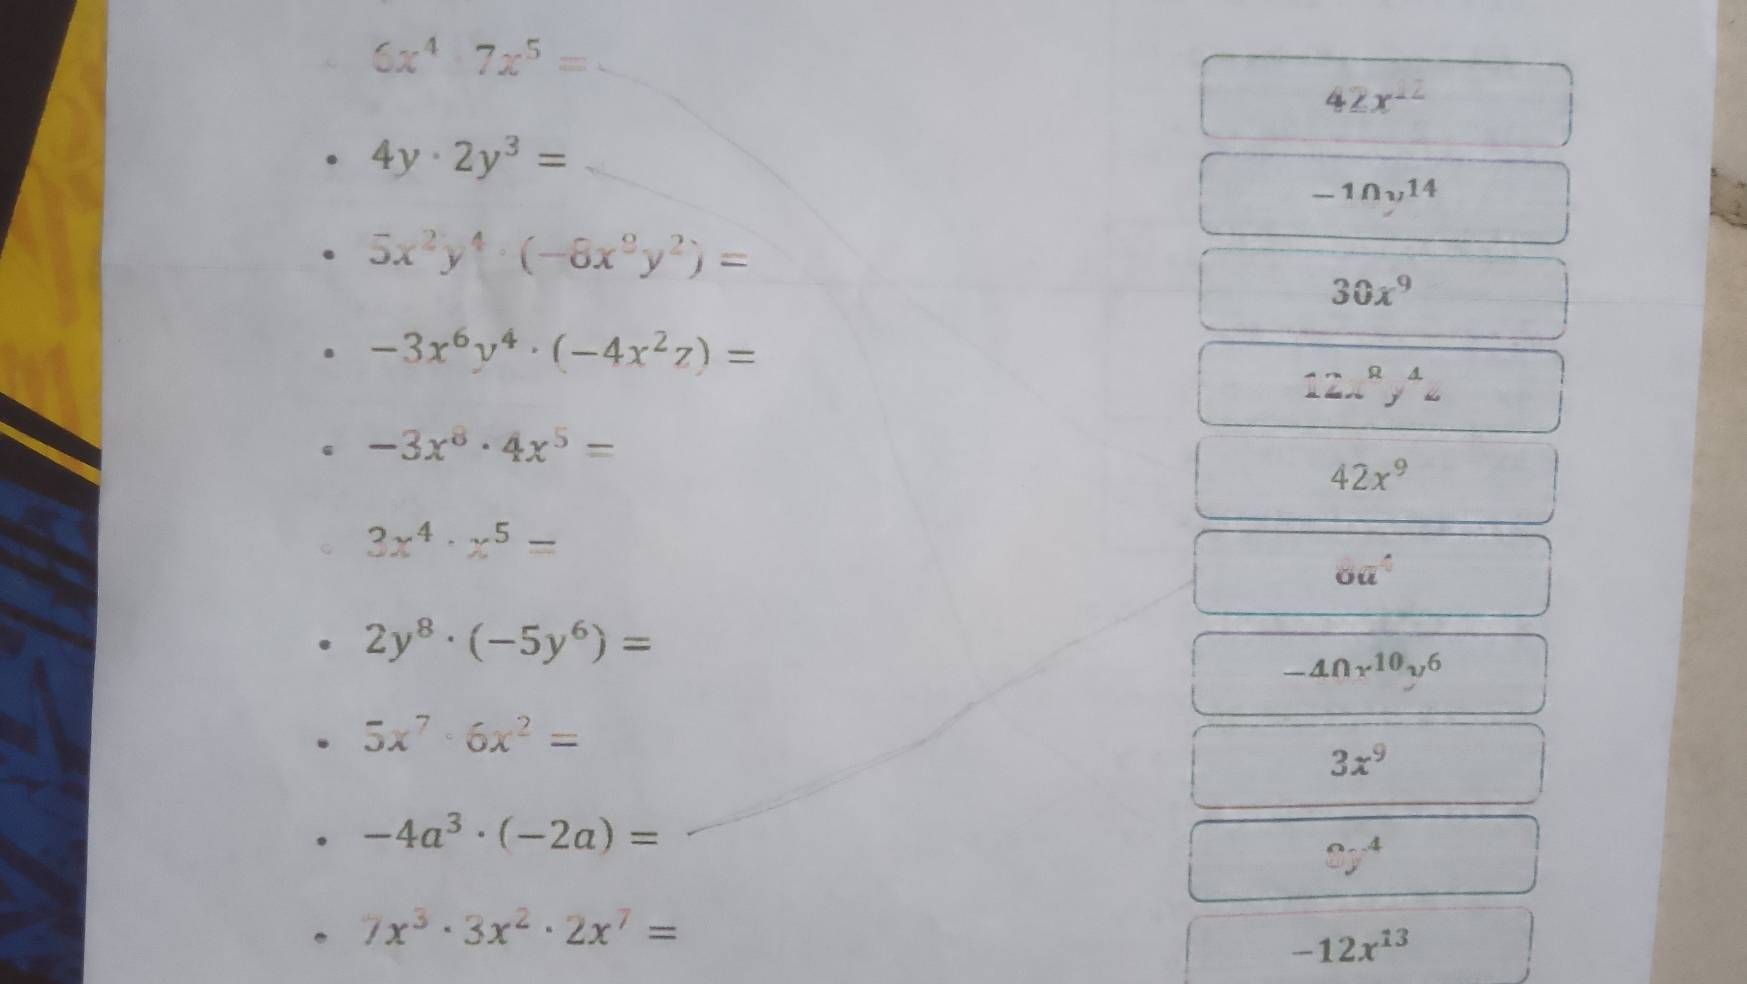 6x⁴ · 7x⁵ =
• 4y · 2y³ =
• 5x²y⁴ · (−8x⁸y²) =
• −3x⁶y⁴ · (−4x²z) =
• −3x⁸ · 4x⁵ =
• 3x⁴ · x⁵ =
• 2y⁸ · (−5y⁶) =
• 5x⁷ · 6x² =
• −4a³ · (−2a) =
• 7x³ · 3x² · 2x⁷ =
42x¹²
−10y¹⁴
30x⁹
12x⁸y⁴z
42x⁹
8a⁴
−40x¹⁰y⁶
3x⁹
8y⁴
−12x¹³